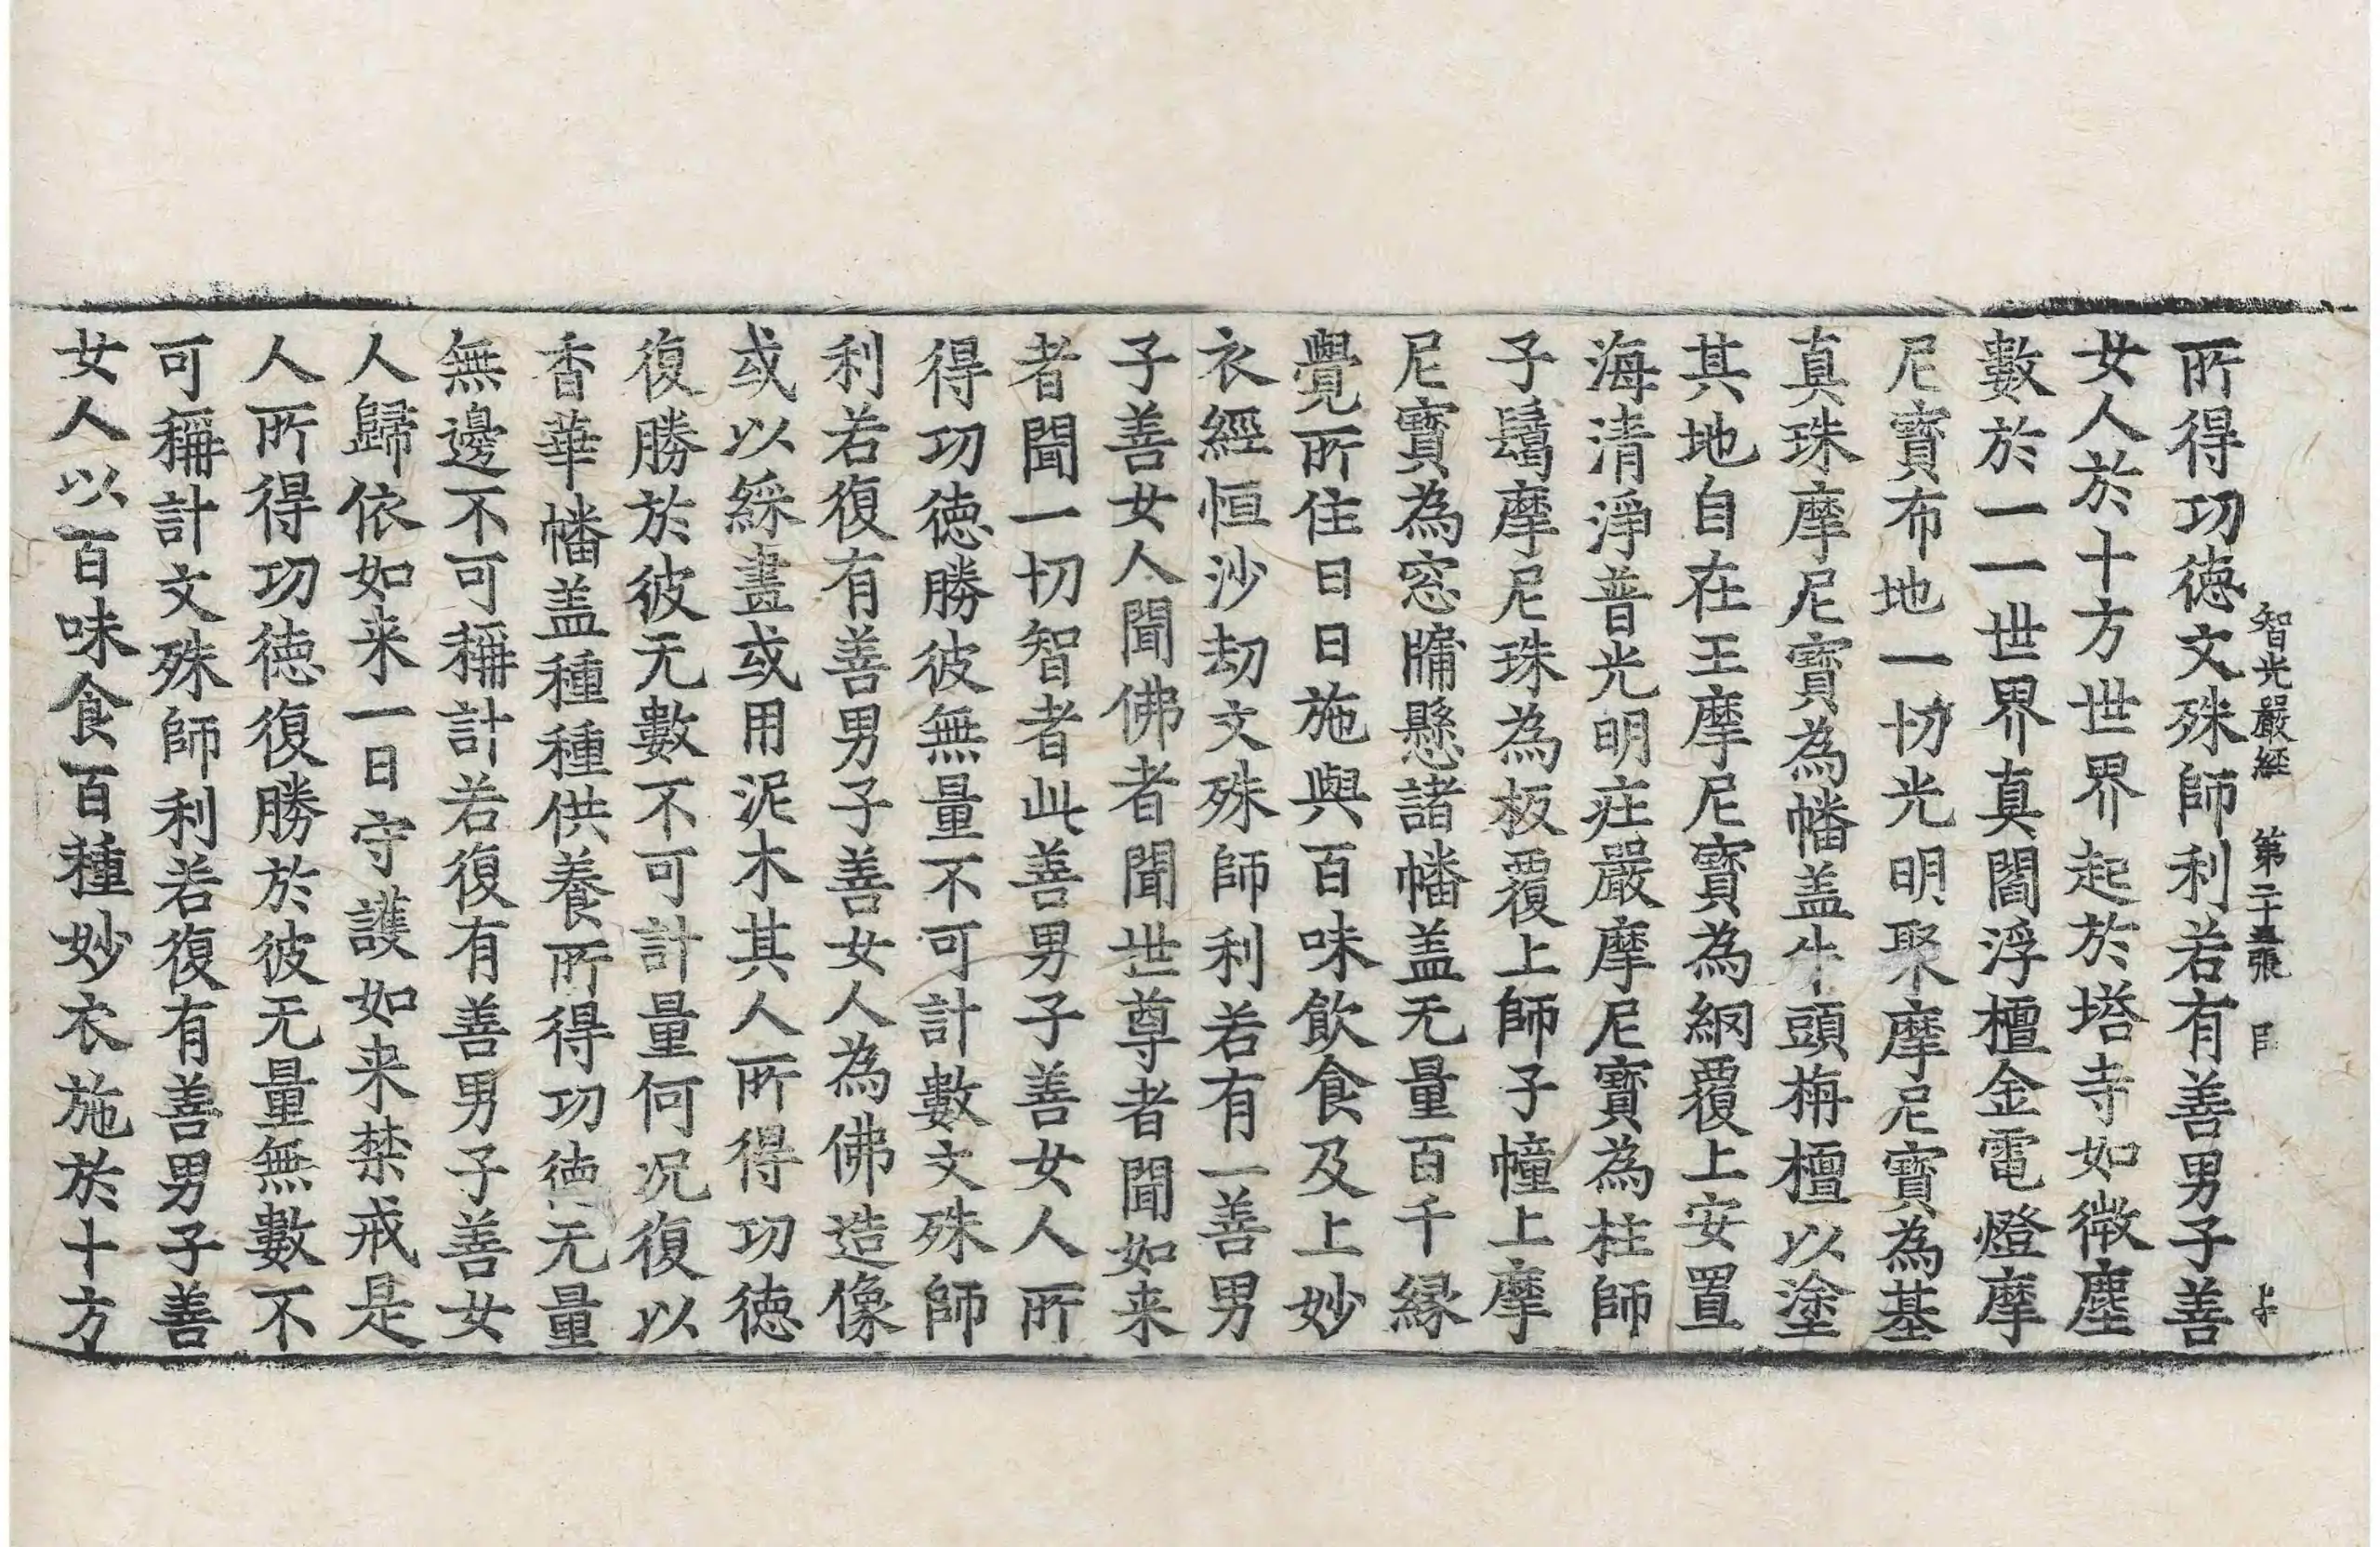 智光嚴経 第二十五張 上
所得功徳文殊師利若有善男子善
女人於十方世界起於塔寺如微塵
數於一一世界真閻浮檀金電燈摩
尼寶布地一切光明聚摩尼寶為基
真珠摩尼寶為幡盖牛頭栴檀以塗
其地自在王摩尼寶為網覆上安置
海清淨普光明庄嚴摩尼寶為柱師
子鬘摩尼珠為板覆上師子幢上摩
尼寶為窓牖懸諸幡盖无量百千縁
覺所住日日施與百味飲食及上妙
衣經恒沙劫文殊師利若有一善男
子善女人聞佛者聞世尊者聞如来
者聞一切智者此善男子善女人所
得功徳勝彼無量不可計數文殊師
利若復有善男子善女人為佛造像
或以綵畫或用泥木其人所得功徳
復勝於彼无數不可計量何况復以
香華幡盖種種供養所得功徳无量
無邊不可稱計若復有善男子善女
人歸依如来一日守護如来禁戒是
人所得功徳復勝於彼无量無數不
可稱計文殊師利若復有善男子善
女人以百味食百種妙衣施於十方